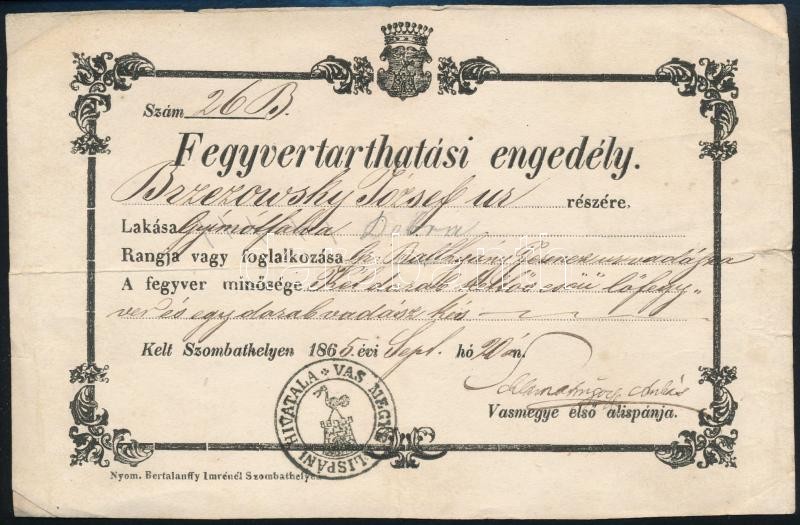 Szám 26 B.
Fegyvertarthatási engedély.
Brzezowsky József ur részére.
Lakása Gyimótfalva Dobra
Rangja vagy foglalkozása Gr. Batthyány
A fegyver minősége Két darab csövű lőfegy-
ver és egy darab vadász kés
Kelt Szombathelyen 1865. évi Sept. hó 20án.
Vasmegye első alispánja.
VAS MEGYE ALISPÁNI HIVATALA
Nyom. Bertalanffy Imrénél Szombathelyen